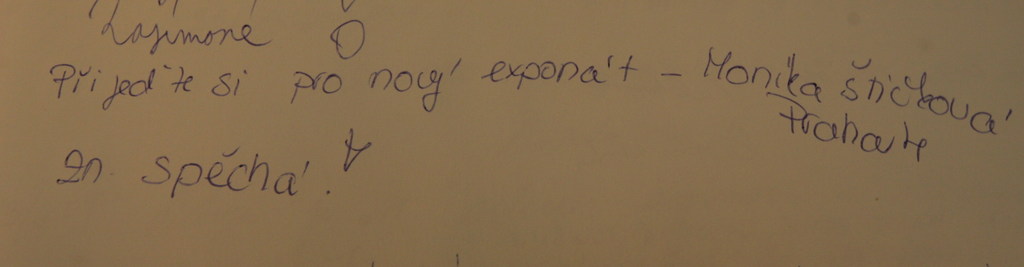 Zajímavé
Přijeďte si pro nový exponát - Monika Štičková
Praha
Zn. Spěchá!